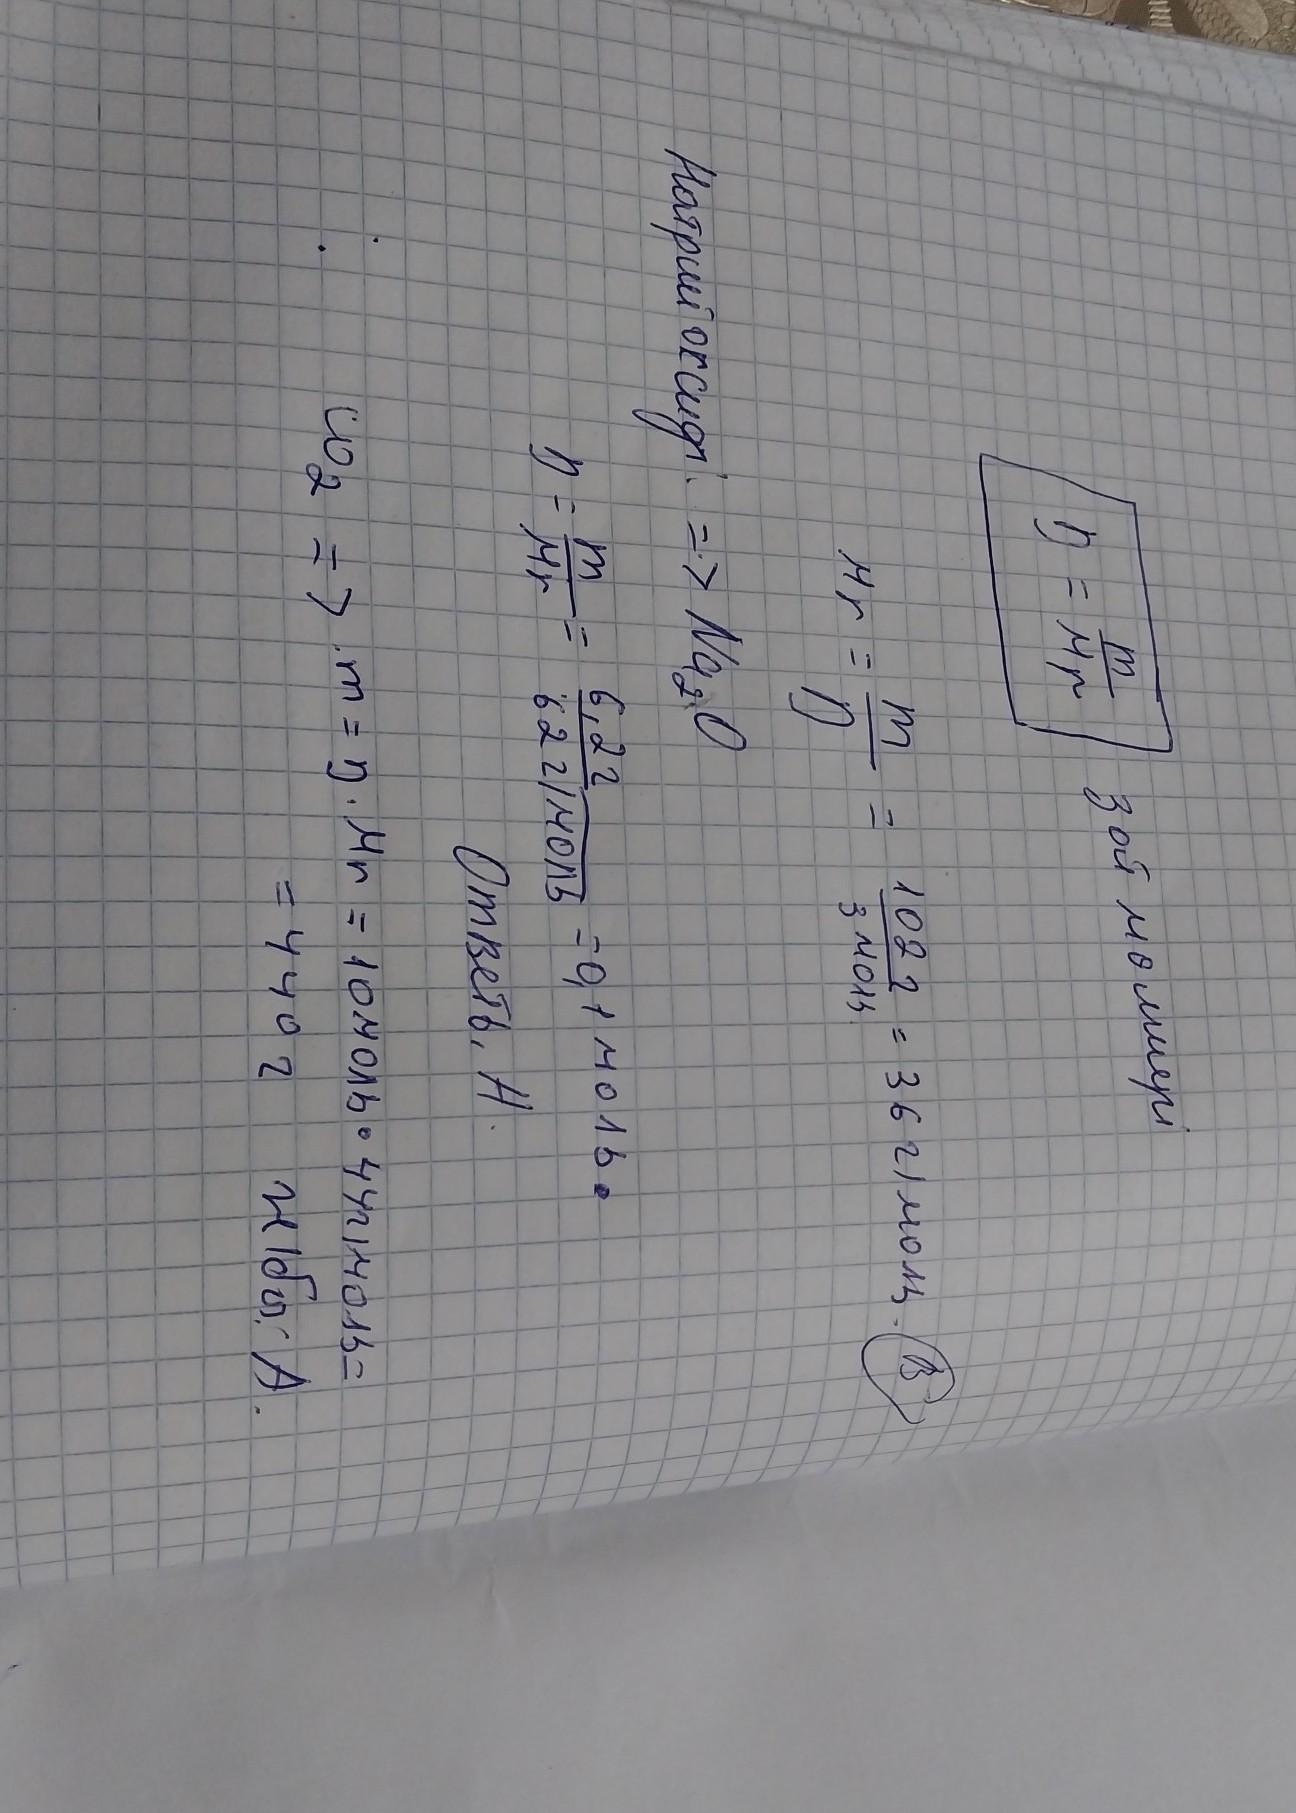 n = m/Mr зат мөлшері
Mr = m/n = 102 г/3 моль = 36 г/моль. В
Натрий оксиді. => Na2O
n = m/Mr = 6,2 г/62 г/моль = 0,1 моль.
Ответь. А.
CO2 => m = n · Mr = 10 моль · 44 г/моль =
= 440 г Жауабы: А.